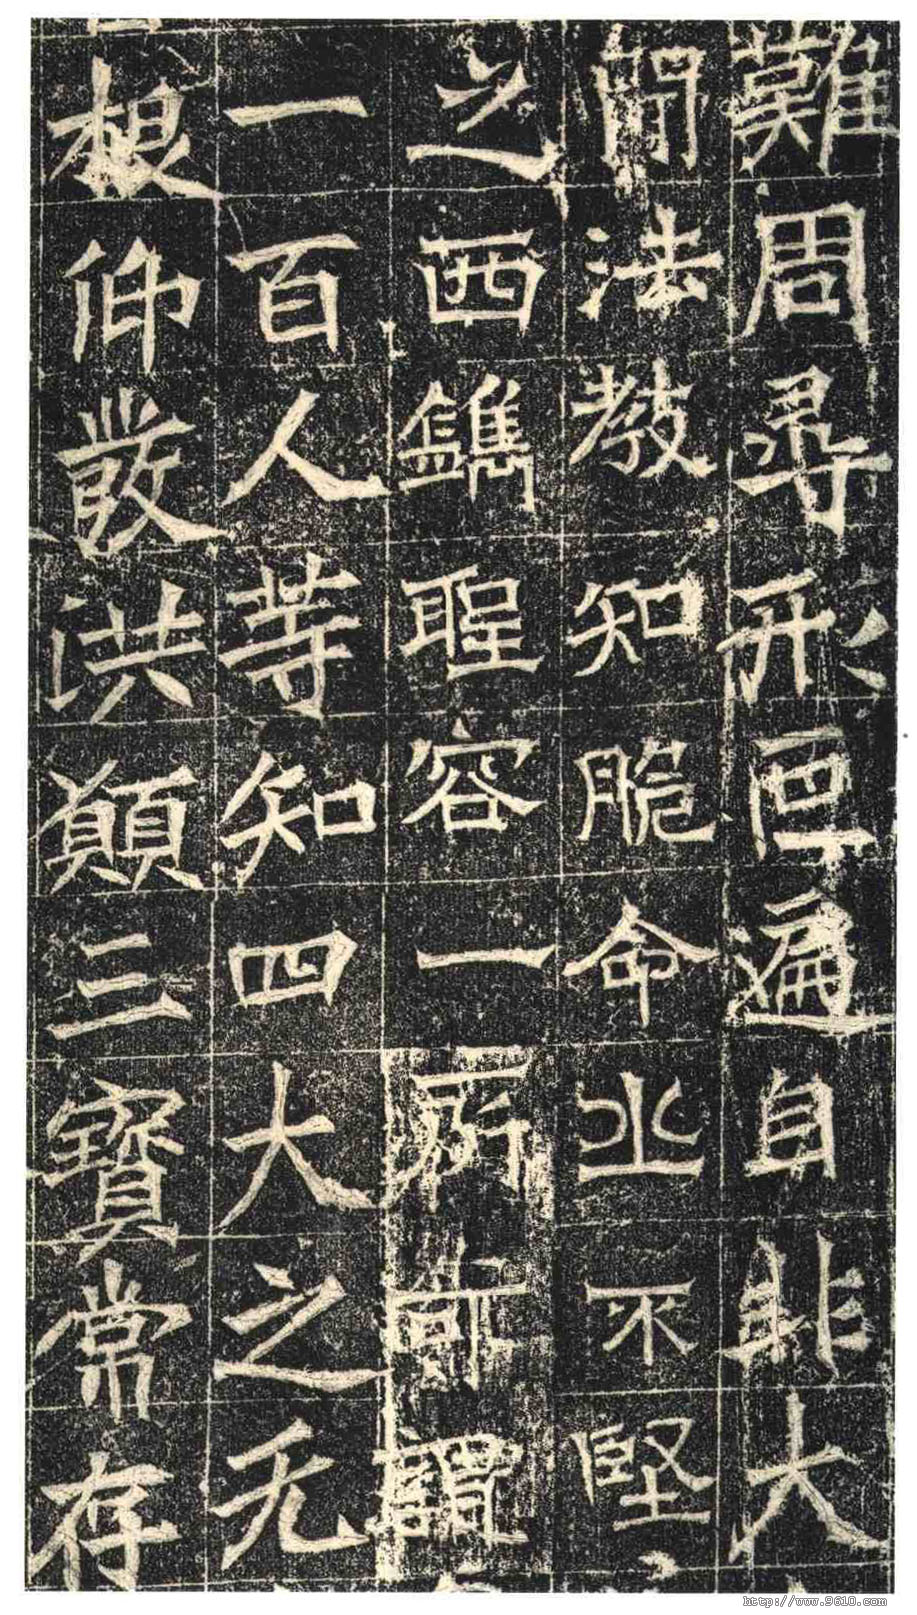 難周尋形叵遍自非大
聞法教知脆命丘不堅
之西鐫聖容一所可謂
一百人等知四大之无
根仰發洪願三寶常存
http://www.9610.com